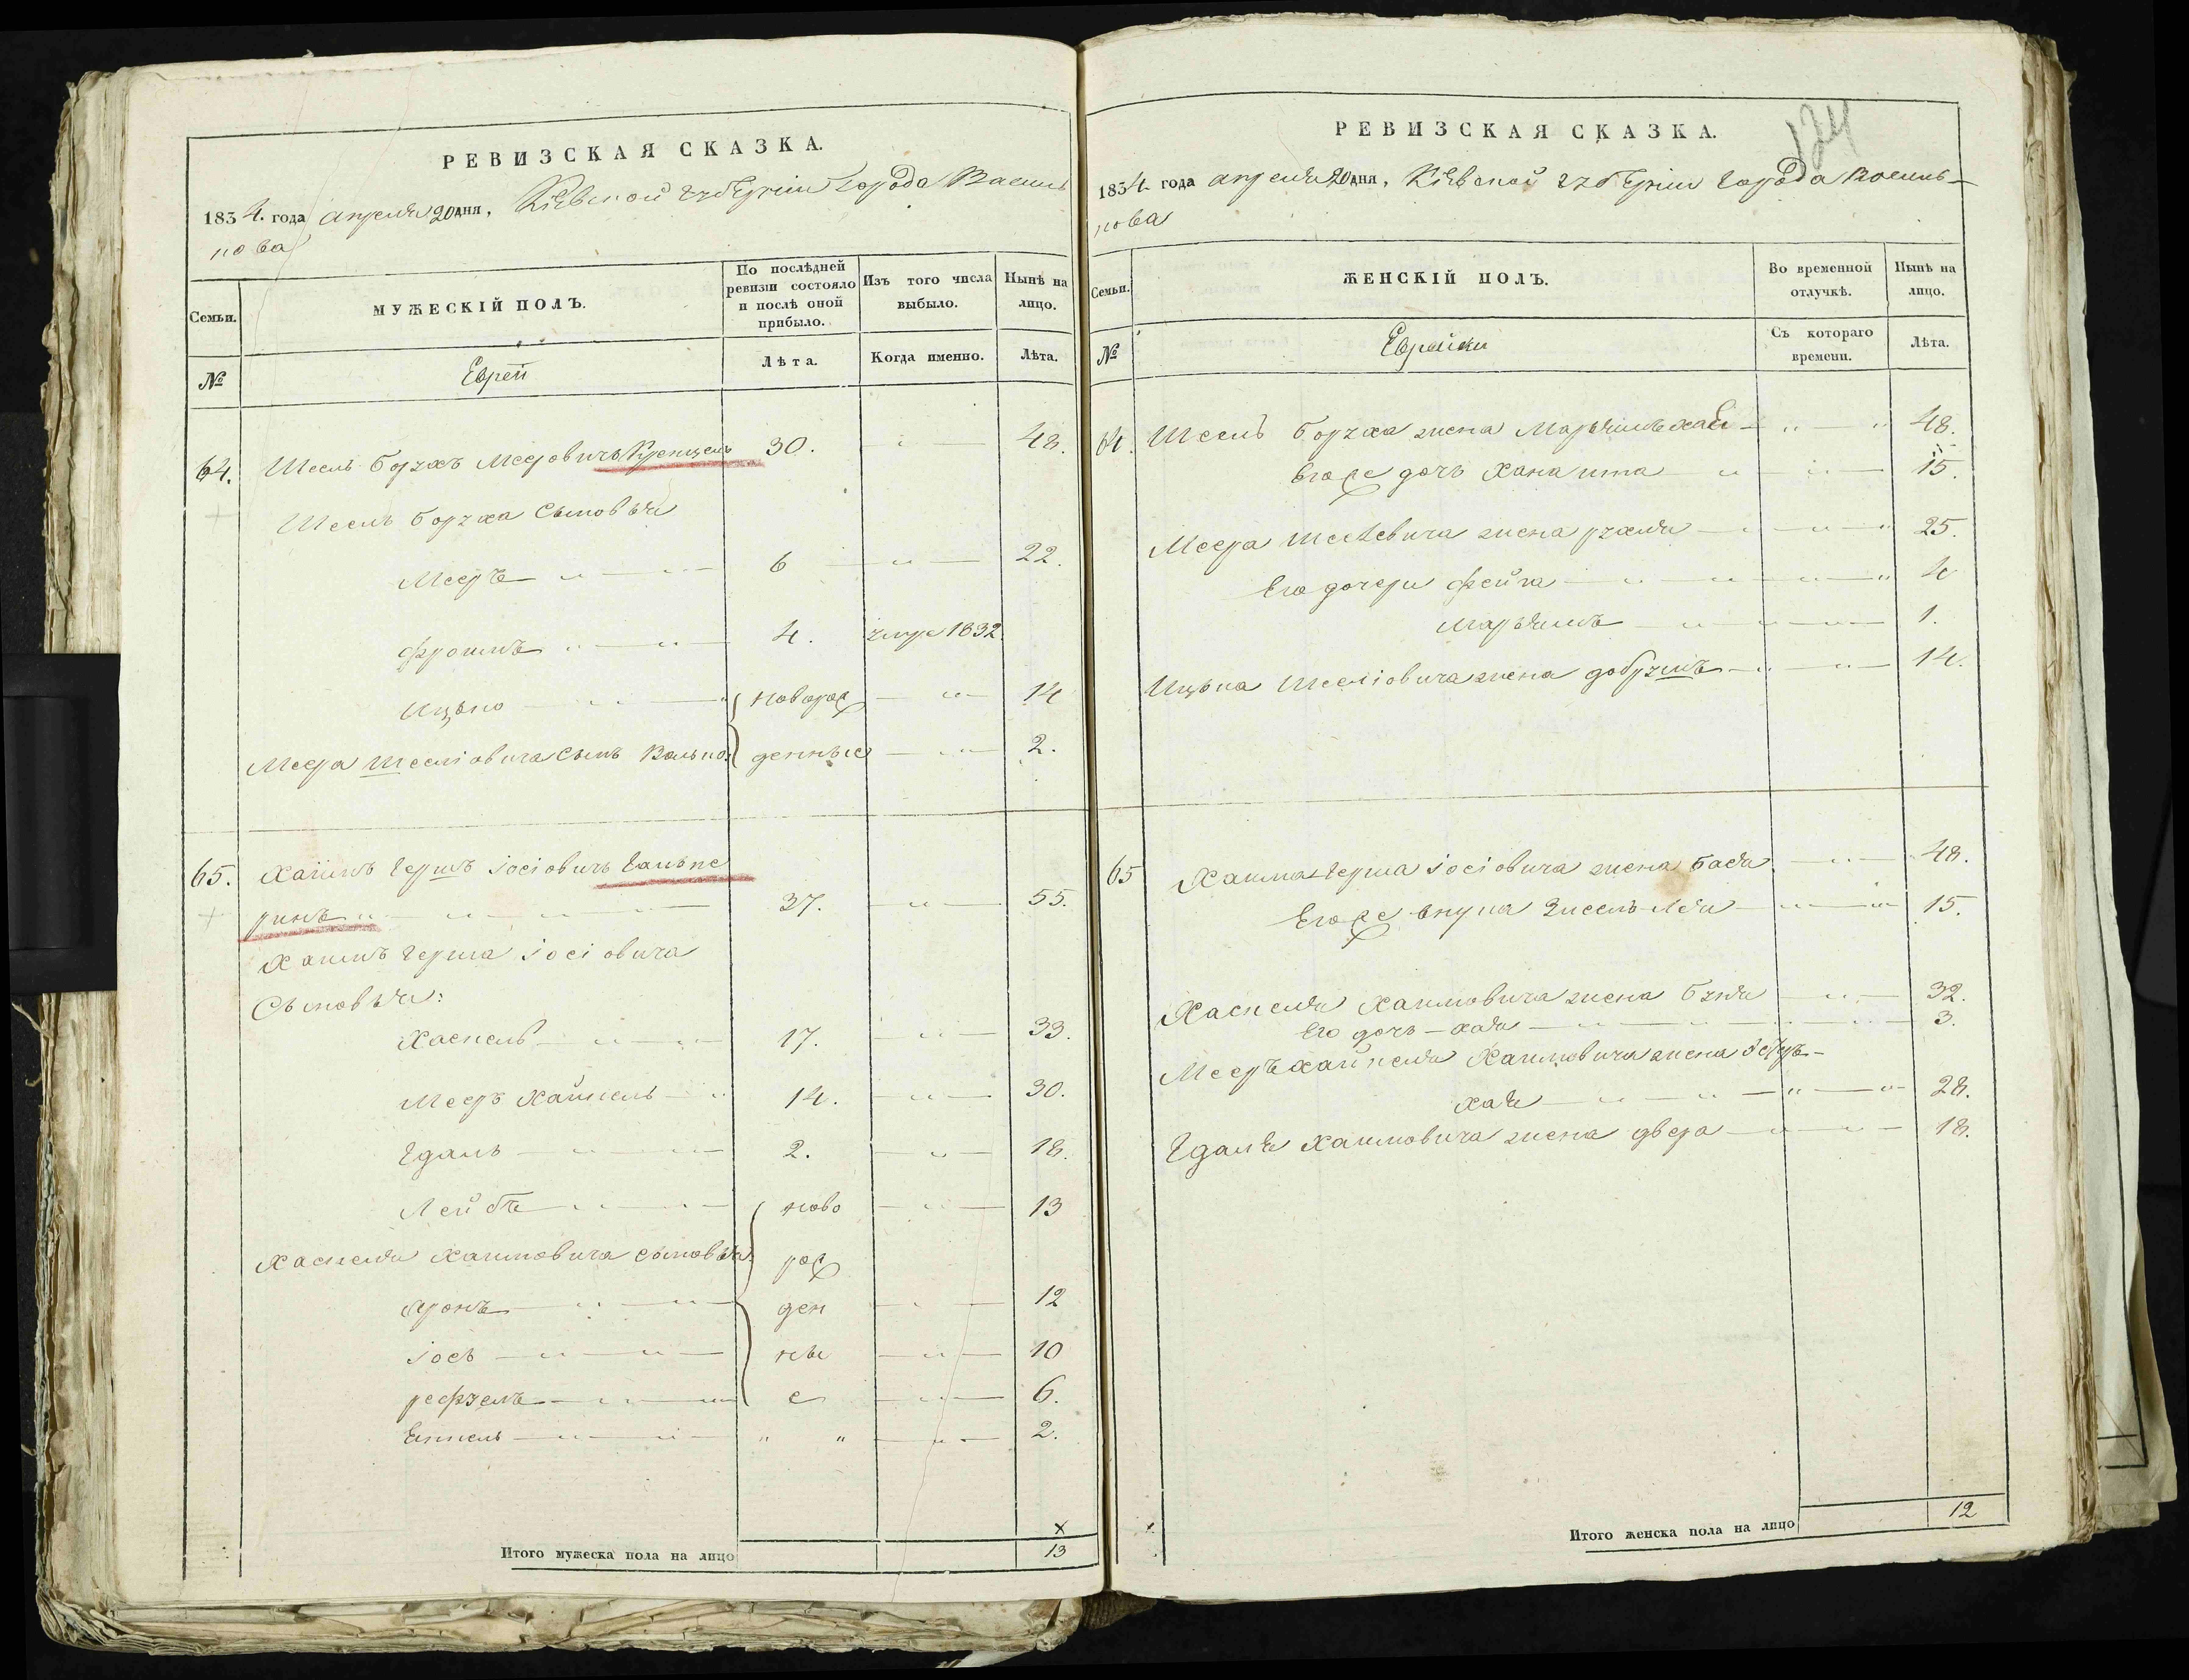 РЕВИЗСКАЯ СКАЗКА.
1834. года апреля 20 дня, Кіевской губерніи города Василь
кова
Семьи.
МУЖЕСКІЙ ПОЛЪ.
По послѣдней ревизіи состояло и послѣ оной прибыло.
Изъ того числа выбыло.
Нынѣ на лицо.
№
Еврей
Лѣта.
Когда именно.
Лѣта.
64. Шесль Борухъ Мееровичъ 30. 48.
Шесль Боруха Сыновья
Мееръ 6 22.
Фроимъ 4. умре 1832.
Ицько новорож 14
Меера Шесліовича сынъ Волько денные 2.
65. Хаимъ Гершъ Іосіовичъ Гальпе
ринъ 37. 55.
Хаимъ Герша Іосіовича
Сыновья:
Хаскель 17. 33.
Мееръ Хайкель 14. 30.
Гдаль 2. 18.
Лейба ново 13
Хаскеля Хаимовича сыновья рож
Аронъ ден 12
Іось ны 10
Рефуель е 6.
2.
Итого мужеска пола на лицо 13
РЕВИЗСКАЯ СКАЗКА.
124
1834 года апреля 20 дня, Кіевской губерніи города Василь-
кова
Семьи.
ЖЕНСКІЙ ПОЛЪ.
Во временной отлучкѣ.
Нынѣ на лицо.
№
Еврейки
Съ котораго времени.
Лѣта.
64. Шесль Боруха жена Марьямъ Хая 48.
Его же дочь Хана ита 15.
Меера Шеслевича жена Рухля 25.
Его дочери Фейга 4
Марьямъ 1.
Ицька Шесліовича жена Добрушъ 14.
65 Хаима Герша Іосіовича жена Бася 48.
Его же внука Зисель Лея 15.
Хаскеля Хаимовича жена Буня 32.
Его дочь Хая 3.
Мееръ Хайкеля Хаимовича жена Эстеръ-
Хая 28.
Гдаля Хаимовича жена Двера 18.
Итого женска пола на лицо 12